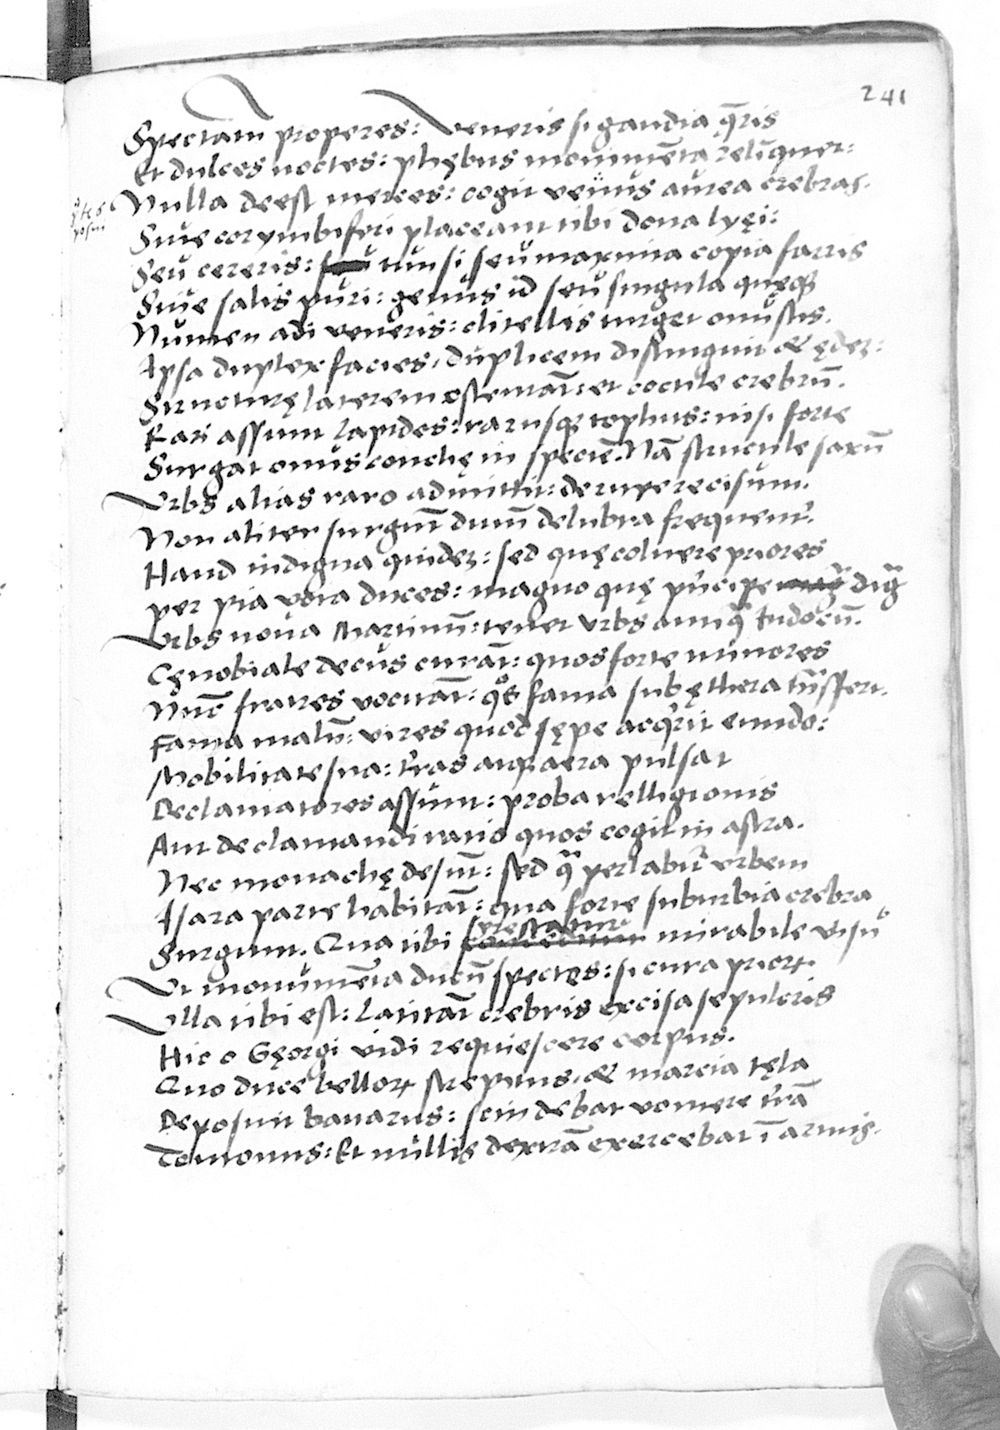 241
Spectatum properes: Veneris si gaudia q̄ris
Et dulces noctes: phębus monimēta reliquer:
Nulla deest merces: cogit venus aurea crebras.
Siue corymbiferi placeant tibi dona lyęi:
Seu cereris: tunsi seu maxima copia farris
Siue salis puri: genus id seu singula quęq
Numen adi veneris: clitellis turget onustis.
Ipsa duplex facies, duplicem distinguit & ędez:
Structurę laterem ostentāt: et coctile crebrū.
Rari assunt lapides: rarusq tophus: nisi forte
Surgat onus conchę in speciē. Nā structile saxū
Vrbs alias raro admittit: de rupe recisum.
Non aliter surgūt dum delubra frequent.
Haud indigna quidez: sed quę coluere priores
per pia vota duces: magno quę prīcipe dig
Vrbs noua Martinū: tenet vrbs antiq Iudocū.
Cęnobiale decus curāt: quos forte minores
Nūc fratres vocitāt: qos fama sub ęthera trāsfert.
Fama malū: vires quod sępe acqrit eundo:
Mobilitate sua: tras atq aera pulsat
Declamatores assunt: proba relligionis
Aut declamandi ratio quos cogit in astra.
Nec monachę desūt: sed q perlabit vrbem
Isara parte habitāt: qua forte suburbia crebra
Surgunt. Qua tibi spectatur mirabile visu
Vt monumēta ducū spectęs: si cura prior.
Vlla tibi est: Latitāt crebris excisa sepulcris
Hic o Gęorgi vidi requiescere corpus.
Quo duce bellor strepitus, & marcia tęla
Deposuit bauarus: scindebat vomere trā
Temonus: Et nullis dextrā exercebat ī armis.